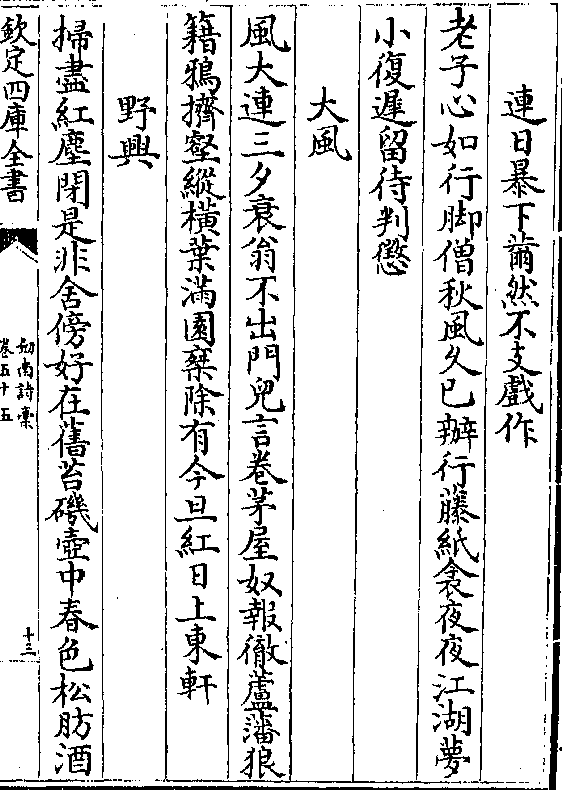 連日暴下薾然不支戲作
老子心如行脚僧秋風久已辦行藤紙衾夜夜江湖夢
小復遲留待判懲
大風
風大連三夕衰翁不出門兒言卷茅屋奴報徹蘆藩狼
籍鴉擠壑縱橫葉滿園㯠除有今旦紅日上東軒
野興
掃盡紅塵閉是非舍傍好在舊苔磯壺中春色松肪酒
欽定四庫全書
劒南詩稾
卷五十五
十三